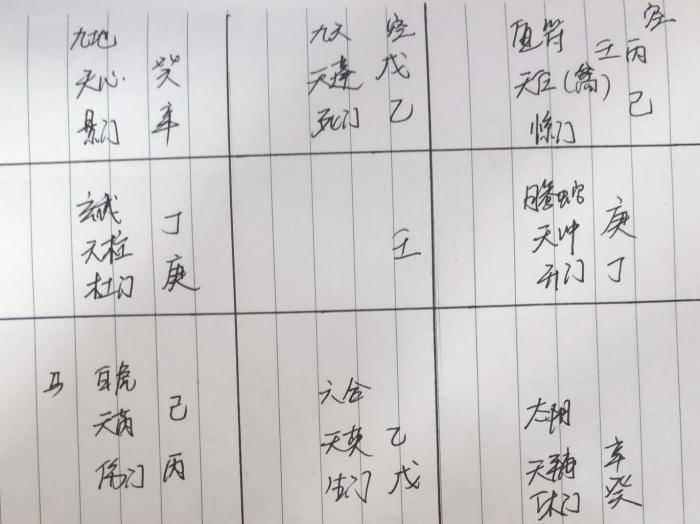 九地
天心 癸
景门 辛
九天 空
天蓬 戊
死门 乙
空
直符 壬丙
天任(禽) 己
惊门
玄武 丁
天柱
杜门 庚
壬
螣蛇
天冲 庚
开门 丁
马 白虎
天芮 己
伤门 丙
六合
天英 乙
生门 戊
太阴
天辅 辛
休门 癸